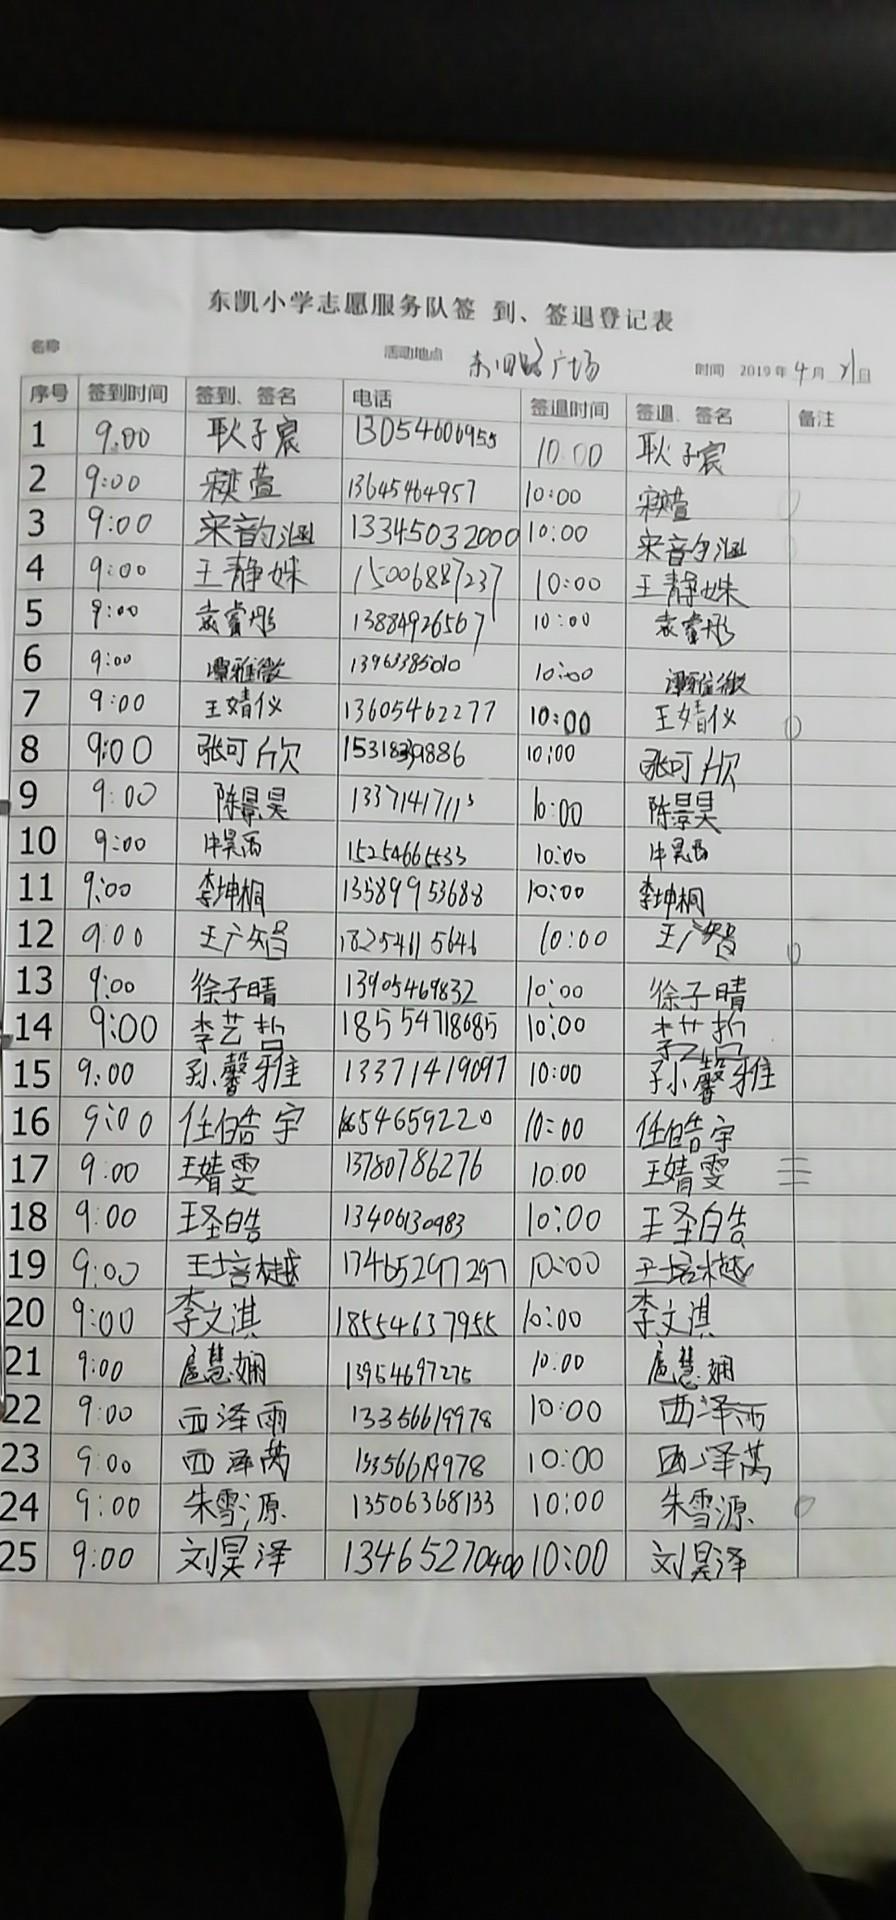 东凯小学志愿服务队签 到、签退登记表
名称 活动地点 广场 时间 2019年4月21日
序号 签到时间 签到、签名 电话 签退时间 签退、签名 备注
1 9:00 耿子宸 13054606955 10:00 耿子宸
2 9:00 萱 13645464957 10:00 萱
3 9:00 宋韵涵 13345032000 10:00 宋韵涵
4 9:00 王静姝 15006887237 10:00 王静姝
5 9:00 袁睿彤 13884926567 10:00 袁睿彤
6 9:00 谭雅微 13963385010 10:00 谭雅微
7 9:00 王婧仪 13605462277 10:00 王婧仪
8 9:00 张可欣 10:00 张可欣
9 9:00 陈景昊 13371417113 10:00 陈景昊
10 9:00 15254665533 10:00
11 9:00 李坤桐 13589953688 10:00 李坤桐
12 9:00 王广智 18254115646 10:00 王广智
13 9:00 徐子晴 13905469832 10:00 徐子晴
14 9:00 李艺哲 18554718685 10:00 李艺哲
15 9:00 孙馨雅 13371419097 10:00 孙馨雅
16 9:00 任皓宇 10:00 任皓宇
17 9:00 王婧雯 13780786276 10:00 王婧雯
18 9:00 王圣皓 13406130983 10:00 王圣皓
19 9:00 王培樾 17465297297 10:00 王培樾
20 9:00 李文淇 18554637955 10:00 李文淇
21 9:00 扈慧娴 13954697275 10:00 扈慧娴
22 9:00 西泽雨 13356619978 10:00 西泽雨
23 9:00 西泽芮 13356619978 10:00 西泽芮
24 9:00 朱雪源 13506368133 10:00 朱雪源
25 9:00 刘昊泽 13465270400 10:00 刘昊泽